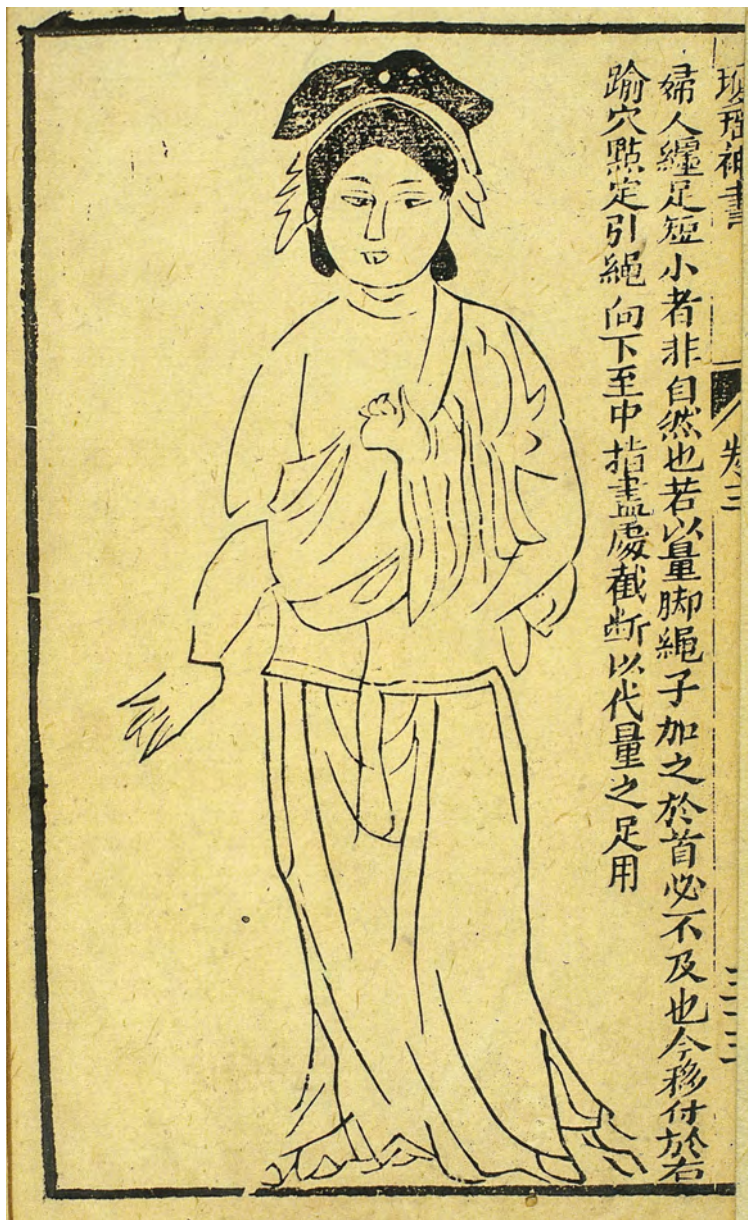 瓊瑤神書
卷三
婦人纏足短小者非自然也若以量脚繩子加之於首必不及也今移付於右
踰穴點定引繩向下至中指盡處截断以代量之足用